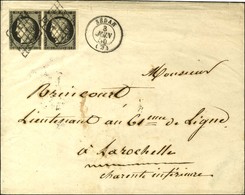 SEDAN
8
JANV
50
(7)
Monsieur
Brincourt
Lieutenant au 61eme de Ligne
à Larochelle
charente inférieure